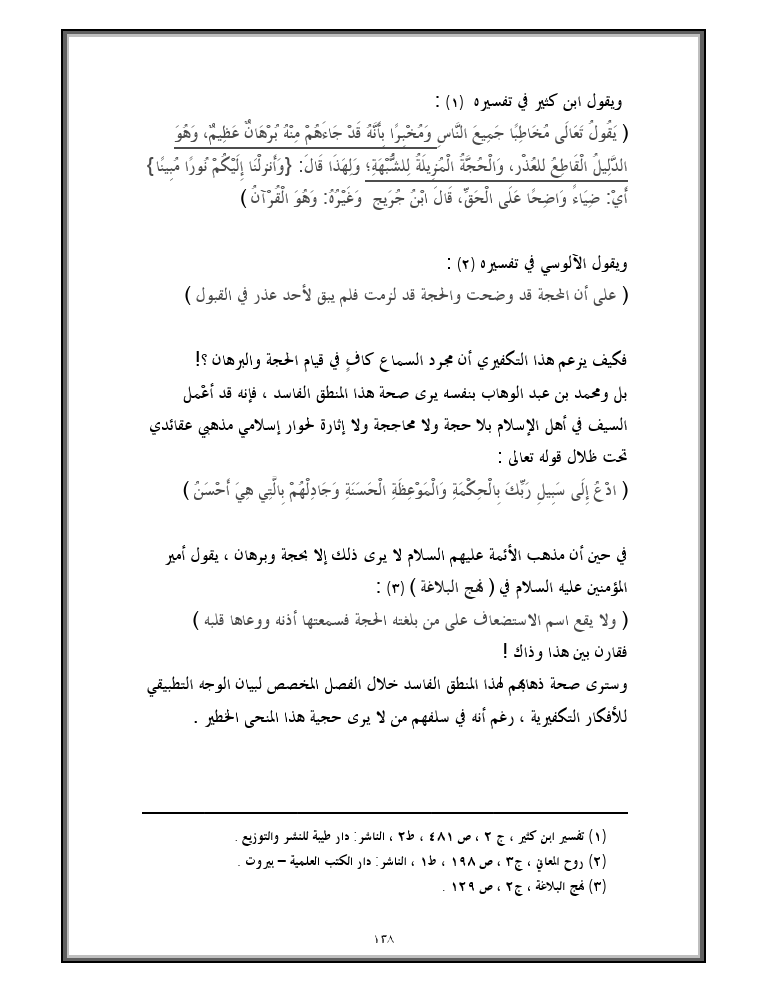 ويقول ابن كثير في تفسيره (١) :
( يَقُولُ تَعَالَى مُخَاطِبًا جَمِيعَ النَّاسِ وَمُخْبِرًا بِأَنَّهُ قَدْ جَاءَهُمْ مِنْهُ بُرْهَانٌ عَظِيمٌ، وَهُوَ
الدَّلِيلُ الْقَاطِعُ للعُذْر، وَالْحُجَّةُ الْمُزِيلَةُ لِلشُّبْهَةِ؛ وَلِهَذَا قَالَ: {وَأَنزلْنَا إِلَيْكُمْ نُورًا مُبِينًا}
أَيْ: ضِيَاءً وَاضِحًا عَلَى الْحَقِّ، قَالَ ابْنُ جُرَيج وَغَيْرُهُ: وَهُوَ الْقُرْآنُ )
ويقول الآلوسي في تفسيره (٢) :
( على أن المحجة قد وضحت والحجة قد لزمت فلم يبق لأحد عذر في القبول )
فكيف يزعم هذا التكفيري أن مجرد السماع كافٍ في قيام الحجة والبرهان ؟!
بل ومحمد بن عبد الوهاب بنفسه يرى صحة هذا المنطق الفاسد ، فإنه قد أعْمل
السيف في أهل الإسلام بلا حجة ولا محاججة ولا إثارة لحوار إسلامي مذهبي عقائدي
تحت ظلال قوله تعالى :
( ادْعُ إِلَى سَبِيلِ رَبِّكَ بِالْحِكْمَةِ وَالْمَوْعِظَةِ الْحَسَنَةِ وَجَادِلْهُمْ بِالَّتِي هِيَ أَحْسَنُ )
في حين أن مذهب الأئمة عليهم السلام لا يرى ذلك إلا بحجة وبرهان ، يقول أمير
المؤمنين عليه السلام في ( نهج البلاغة ) (٣) :
( ولا يقع اسم الاستضعاف على من بلغته الحجة فسمعتها أذنه ووعاها قلبه )
فقارن بين هذا وذاك !
وسترى صحة ذهابهم لهذا المنطق الفاسد خلال الفصل المخصص لبيان الوجه التطبيقي
للأفكار التكفيرية ، رغم أنه في سلفهم من لا يرى حجية هذا المنحى الخطير .
(١) تفسير ابن كثير ، ج ٢ ، ص ٤٨١ ، ط٢ ، الناشر: دار طيبة للنشر والتوزيع .
(٢) روح المعاني ، ج٣ ، ص ١٩٨ ، ط١ ، الناشر: دار الكتب العلمية – بيروت .
(٣) نهج البلاغة ، ج٢ ، ص ١٢٩ .
١٣٨